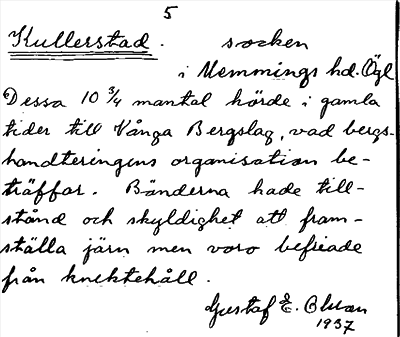 5
Kullerstad. socken
i Memmings hd. Ögl
Dessa 10 3/4 mantal hörde i gamla
tider till Vånga Bergslag, vad bergs-
handteringens organisation be-
träffar. Bönderna hade till-
stånd och skyldighet att fram-
ställa järn men voro befriade
från knektehåll.
Gustaf E. Olsson
1937